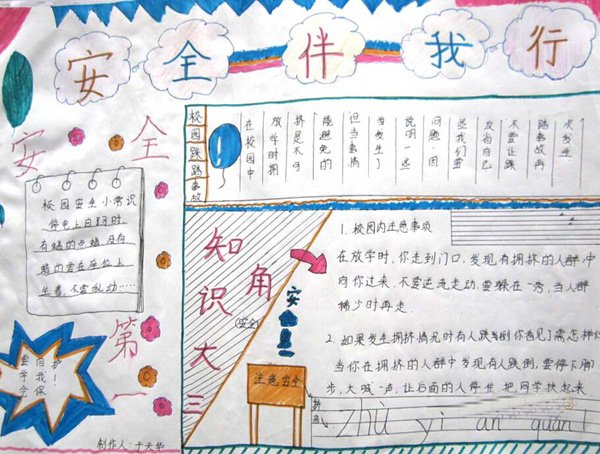 安全伴我行
安全第一
校园安全小常识
停电上自习时,
有蜡的点蜡,没有
蜡的要在座位上
坐着,不要乱动……
要自护
学我!
会保
制作人:
校园践踏事故
在校园中
放学时拥
挤是不可
能避免的
说明一些
问题,因
此我们要
不要让践
踏事故再
次发生
知识大三角
(安全)
1. 校园内注意事项
在放学时,你走到门口,发现有拥挤的人群冲
向你过来,不要逆流走动,要躲在一旁,当人群
稀少时再走.
2. 如果发生拥挤情况时有人跌倒你看见了需怎样做
当你在拥挤的人群中发现有人跌倒,要停下脚
步,大喊一声,让后面的人停住,把同学扶起来
注意安全
拼音
zhù yì ān quán!